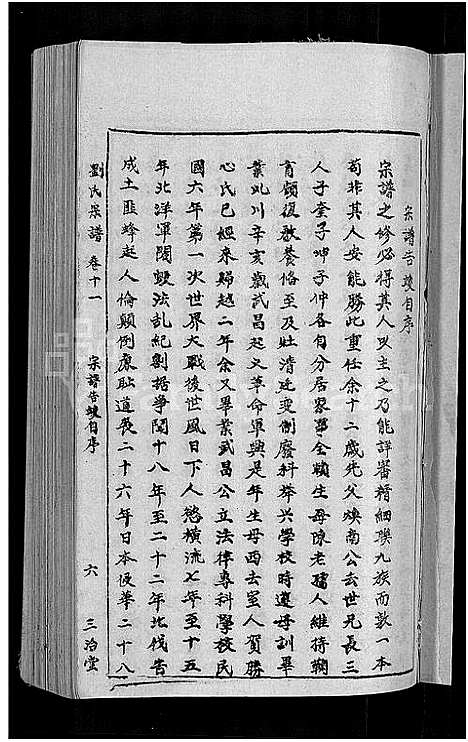 宗譜告竣自序
宗譜之修必得其人以主之乃能詳審精細聯九族而敦一本
苟非其人安能勝此重任余十二歲先父煥南公去世兄長三
人子奎子坤子仲各自分居家事全賴生母陳老孺人維持鞠
育顧復教養俻至及壯清廷变制廢科举兴学校時遵母訓畢
業蚪川辛亥歲武昌起义革命軍興是年生母西去室人賀勝
心氏已經來歸越二年余又畢業武昌公立法律專科學校民
國六年第一次世界大戰後世風日下人慾橫流七年至十五
年北洋軍閥毀法乱紀割据爭閗十八年至二十二年北伐告
成土匪蜂起人倫顛倒廉耻道喪二十六年日本侵華二十八
劉氏宗譜 卷十一 宗譜告竣自序 六 三治堂